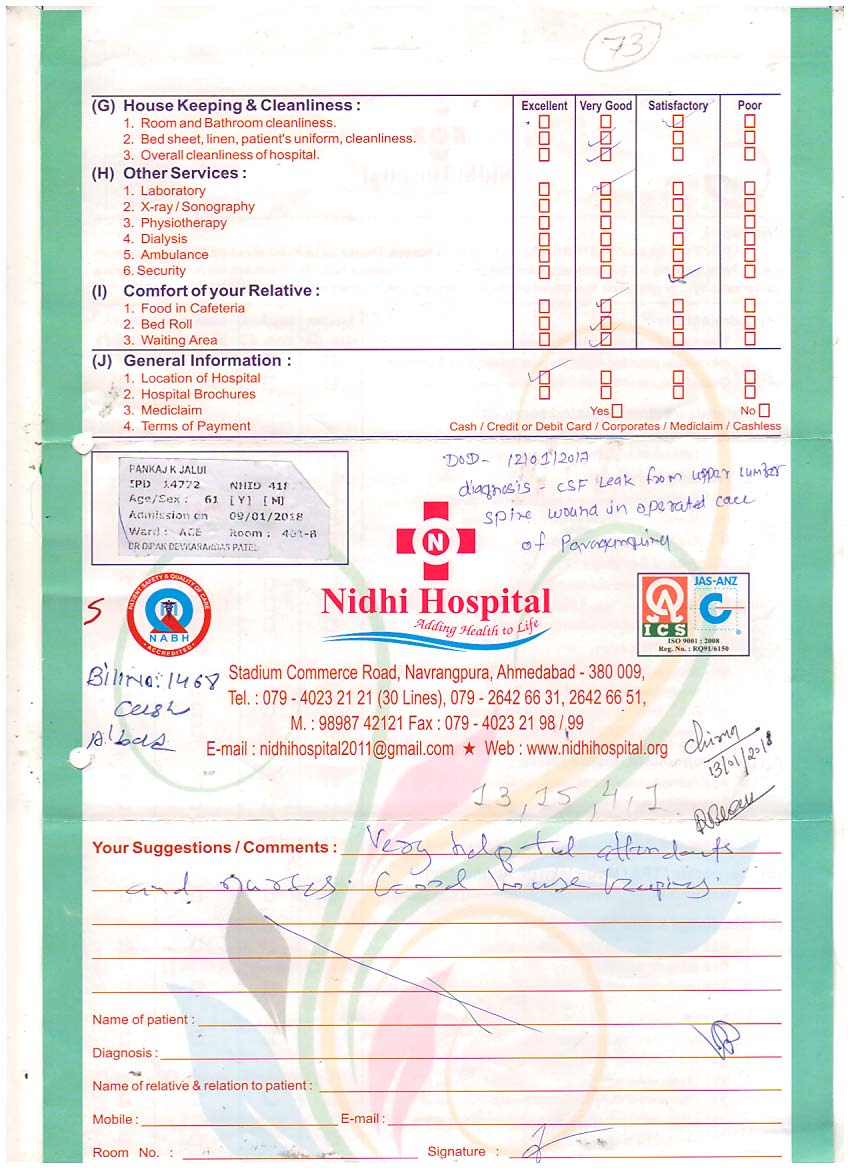 73
(G) House Keeping & Cleanliness : Excellent Very Good Satisfactory Poor
1. Room and Bathroom cleanliness.
2. Bed sheet, linen, patient's uniform, cleanliness.
3. Overall cleanliness of hospital.
(H) Other Services :
1. Laboratory
2. X-ray / Sonography
3. Physiotherapy
4. Dialysis
5. Ambulance
6. Security
(I) Comfort of your Relative :
1. Food in Cafeteria
2. Bed Roll
3. Waiting Area
(J) General Information :
1. Location of Hospital
2. Hospital Brochures
3. Mediclaim Yes No
4. Terms of Payment Cash / Credit or Debit Card / Corporates / Mediclaim / Cashless
PANKAJ K JALUI
IPD 14772 NHID 418
Age/Sex : 61 [Y] [M]
Admission on 09/01/2018
Ward : ACE Room : 403-B
DR DIPAK DEVKARANDAS PATEL
DOD - 12/01/2017
diagnosis - CSF Leak from upper lumber
spine wound in operated case
of
N
PATIENT SAFETY & QUALITY OF CARE
NABH
ACCREDITED
Nidhi Hospital
Adding Health to Life
JAS-ANZ
ICS
C
ISO 9001 : 2008
Reg. No. : RQ91/6150
5
Bill No: 1468
Cash
Stadium Commerce Road, Navrangpura, Ahmedabad - 380 009,
Tel. : 079 - 4023 21 21 (30 Lines), 079 - 2642 66 31, 2642 66 51,
M. : 98987 42121 Fax : 079 - 4023 21 98 / 99
E-mail : nidhihospital2011@gmail.com ★ Web : www.nidhihospital.org
13/01/2018
13, 15, 4, 1
Your Suggestions / Comments : Very helpful attendants
and nurses. Good house keeping.
Name of patient :
Diagnosis :
Name of relative & relation to patient :
Mobile : E-mail :
Room No. : Signature :